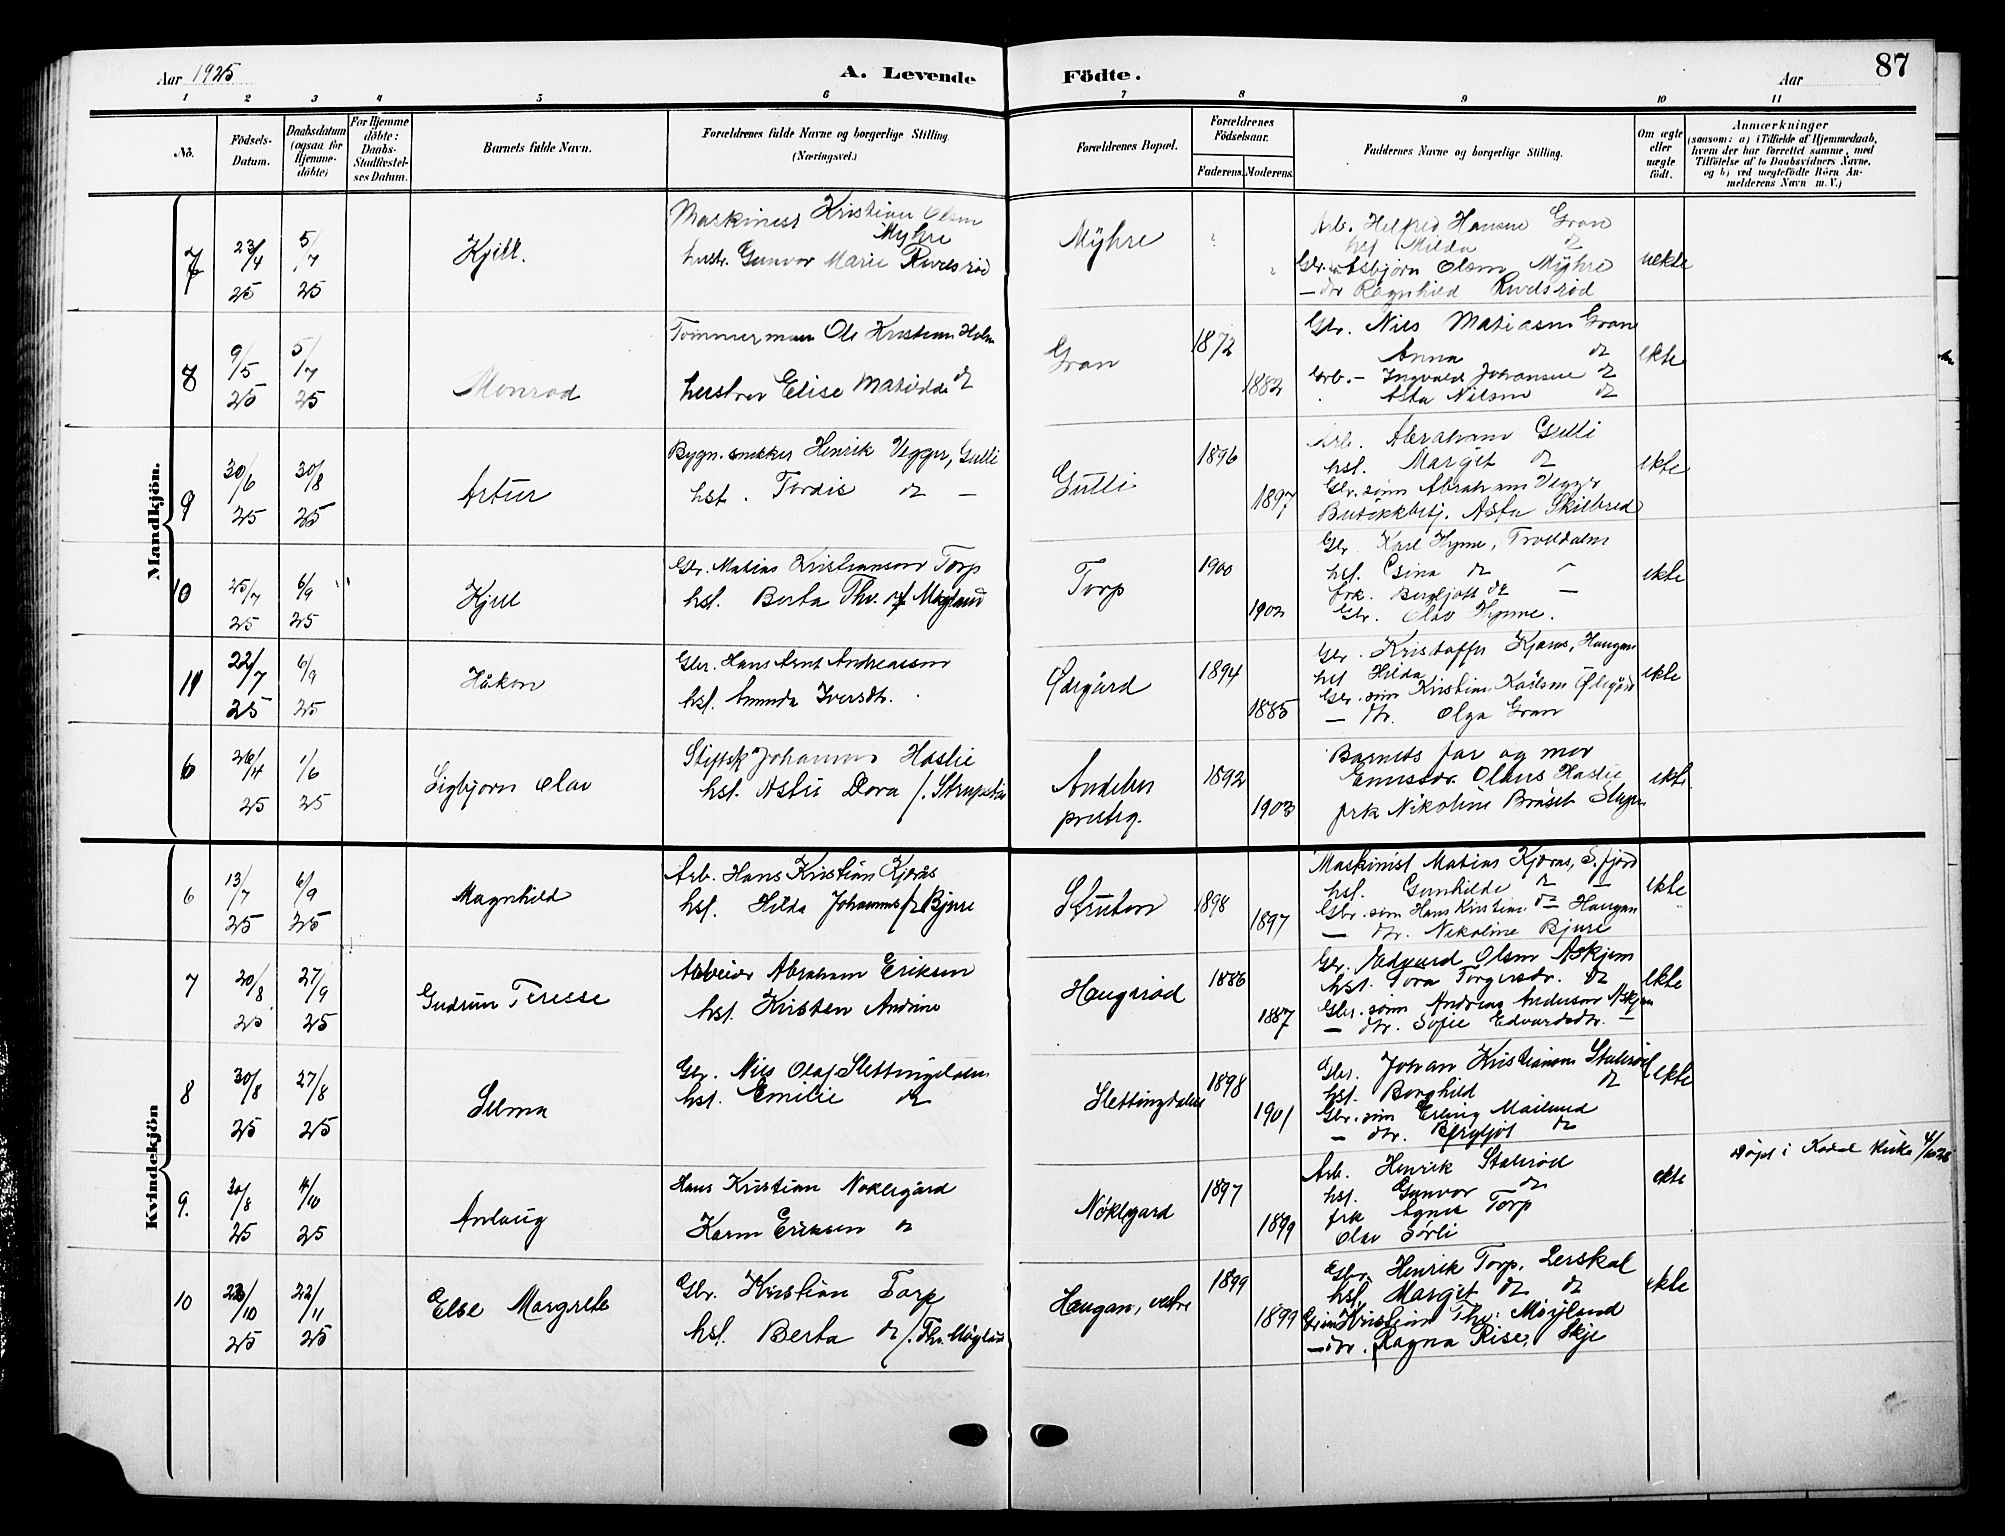 Aar 1925
A. Levende Födte.
Aar
87
1 2 3 4 5 6 7 8 9 10 11
No.
Födsels-Datum.
Daabsdatum (ogsaa for Hjemme-döbte)
For Hjemme döbte: Daabs-Stadfæstel-ses Datum.
Barnets fulde Navn.
Forældrenes fulde Navne og borgerlige Stilling.
(Næringsvei.)
Forældrenes Bopæl.
Forældrenes Födselsaar.
Faderens. Moderens.
Faddernes Navne og borgerlige Stilling.
Om ægte eller uægte födt.
Anmærkninger
(saasom: a) i Tilfælde af Hjemmedaab, hvem der har forrettet samme, med Tilföielse af to Daabsvidners Navne, og b) ved uægtefödte Börn An-melderens Navn m. V.)
Mandkjön.
7 23/4 25 5/7 25 Kjell.
Maskinist Kristian Olsen Myhre
hustr. Gunvor Marie Rivelsrød
Myhre
Arb. Helfred Hansen Gran
hst Milda do
Gbr. Asbjørn Olsen Myhre
— dtr Ragnhild Rivelsrød
uekte
8 9/5 25 5/7 25 Monrad
Tømmermann Ole Kristian Holm
hustru Elise Matilde do
Gran 1872 1882
Gbr. Nils Matiasen Gran
Anna do
Arb. - Ingvald Johansen do
Asta Nilsen do
ekte
9 30/6 25 30/8 25 Artur
Bygn.snekker Henrik Vegger, Gulli
hst. Tordis do —
Gulli 1896 1897
Arb. Abraham Gulli
hst. Margit do
Gbr. sønn Abraham Vegger
Butikkbestj. Asta Skilbred
ekte
10 25/7 25 6/9 25 Kjell
Gbr. Matias Kristiansen Torp
hst. Berta Thv. df Møyland
Torp 1900 1902
Gbr. Karl Hynne, Trolldalen
hst. Esina do —
frk. Bergljott do —
Gbr. Olav Hynne.
ekte
11 22/7 25 6/9 25 Håkon
Gbr. Hans Arnt Andreassen
hst. Amunda Iversdtr.
Ødegård 1894 1885
Gbr. Kristoffer Kjærås, Haugan
hst Hilda
Gbr. søn Kristian Karlsen Ødegård
— dtr. Olga Gran
ekte
6 26/4 25 1/6 25 Sigbjørn Olav
Stiftsk Johannes Haslie
hst. Astri Dora f. Strupstad
Andebu presteg. 1892 1903
Barnets far og mor
Emissær Olaus Haslie
frk Nikoline Bråset Slagen
ekte
Kvindekjön
6 13/7 25 6/9 25 Magnhild
Arb. Hans Kristian Kjærås
hst. Hilda Johannes f. Bjure
Struten 1898 1897
Maskinist Matias Kjærås, S. fjord
hst. Gunhilde do —
Gbr. søn Hans Kristian do — Haugan
— dtr. Nikoline Bjure
ekte
7 20/8 25 27/9 25 Gudrun Teresse
Arbeider Abraham Eriksen
hst. Kristen Andrine
Haugsrød 1886 1887
Gbr. Edvard Olsen Askjem
hst. Tora Torgersdr. do
Gbr. sønn Andreas Andersen Askjem
— dtr. Sofie Edvardsdtr. —
ekte
8 30/8 25 27/8 25 Selma
Gbr. Nils Olaf Slettingdalen
hst. Emilie do
Slettingdalen 1898 1901
Gbr. Johan Kristiansen Stalsrød
hst. Borghild do
Gbr. søn Erling Møiland
— dtr. Bergljot do
ekte
9. 20/8 25 4/10 25 Anlaug
Hans Kristian Noklegård
Karen Eriksen do
Nøklegard 1897 1899
Arb. Henrik Stalsrød
hst. Gunvor do
frk Agnes Torp
Olav Sørli
ekte
Døpt i Kodal kirke 4/10 25
10 23/10 25 22/11 25 Else Margrete
Gbr. Kristian Torp
hst. Berta do f. Thv. Møyland
Haugan, vestre 1899 1899
Gbr. Henrik Torp, Lerskal
hst. Margit do do
Gbr. søn Kristian Thv. Møyland
— dtr. Ragna Rise, Skje
ekte